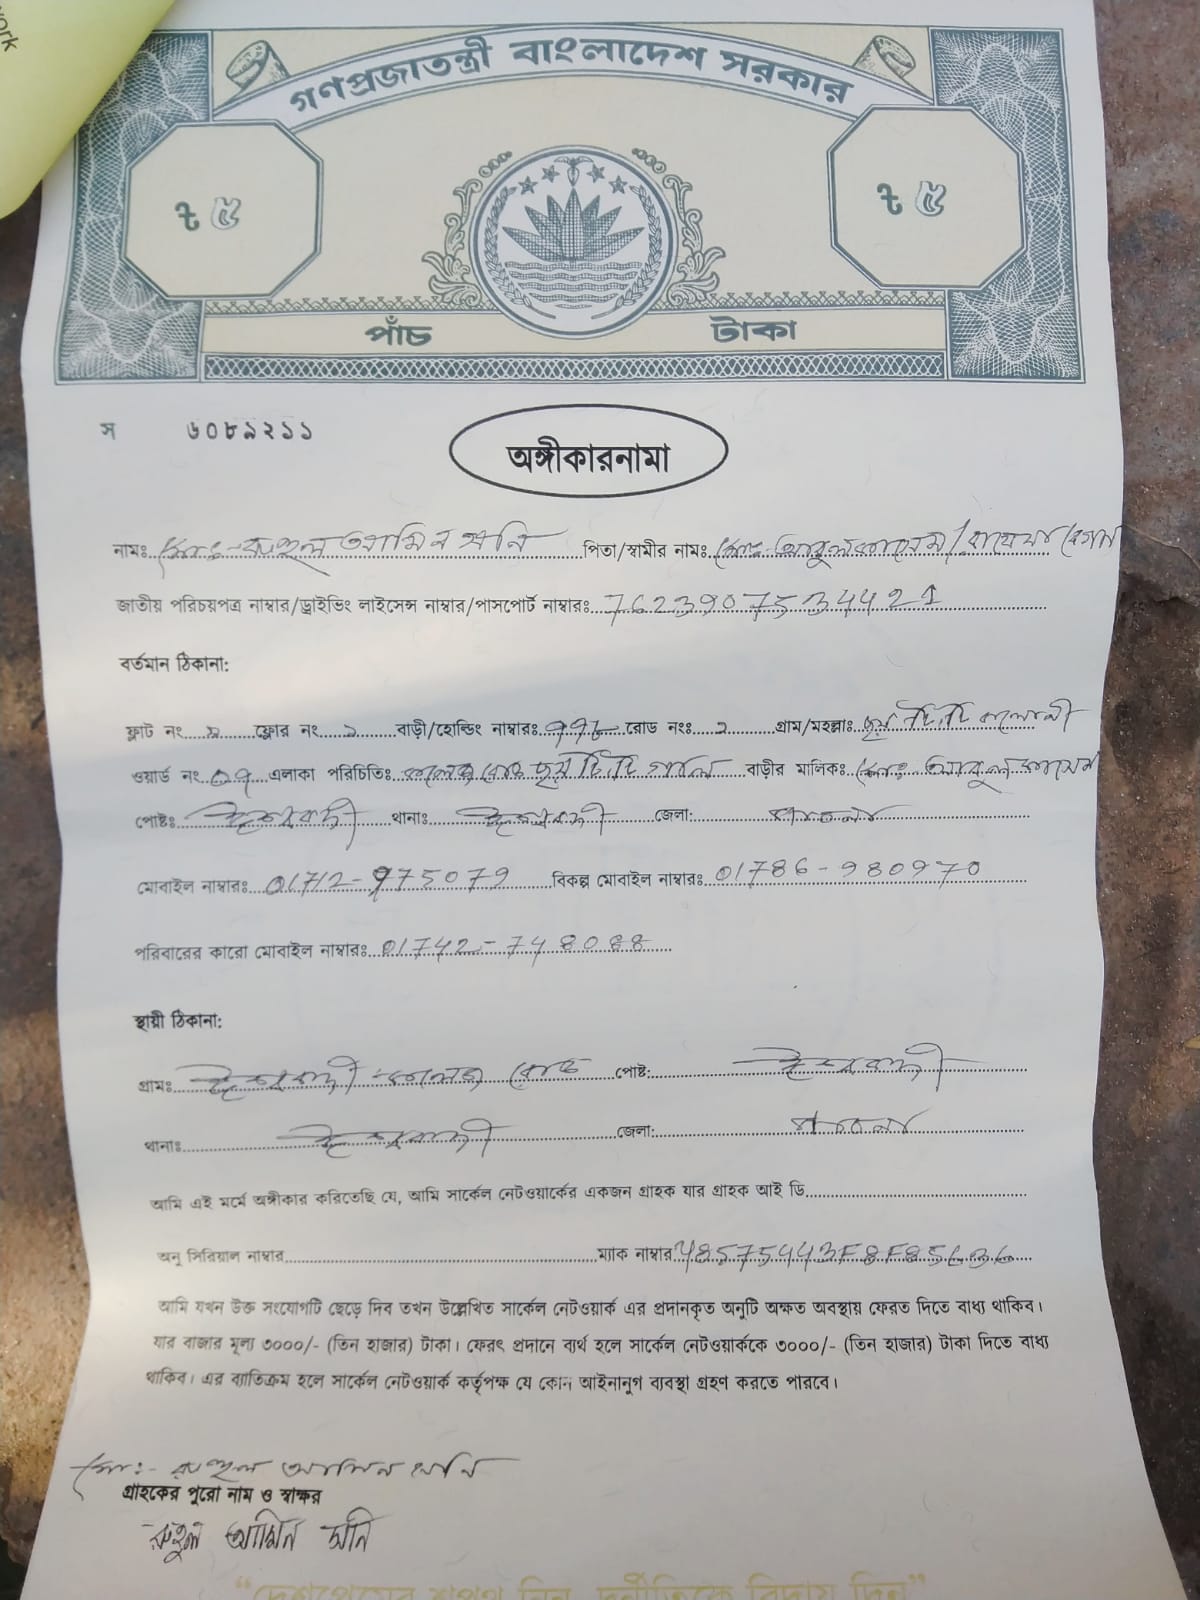 work
গণপ্রজাতন্ত্রী বাংলাদেশ সরকার
৳ ৫ ৳ ৫
পাঁচ টাকা
স ৬০৮৯২১১
অঙ্গীকারনামা
নামঃ মোঃ- রুহুল আমিন মনি পিতা/স্বামীর নামঃ মোঃ- আবুল কাসেম/ বেগম
জাতীয় পরিচয়পত্র নাম্বার/ড্রাইভিং লাইসেন্স নাম্বার/পাসপোর্ট নাম্বারঃ 7623907534421
বর্তমান ঠিকানা:
ফ্লাট নং ফ্লোর নং ১ বাড়ী/হোল্ডিং নাম্বারঃ রোড নংঃ ১ গ্রাম/মহল্লাঃ টি,টি কলোনী
ওয়ার্ড নং 07 এলাকা পরিচিতিঃ কলেজ রোড টি টি গলি বাড়ীর মালিকঃ মোঃ আবুল কাসেম
পোষ্টঃ ঈশ্বরদী থানাঃ ঈশ্বরদী জেলা: পাবনা
মোবাইল নাম্বারঃ 01712-975079 বিকল্প মোবাইল নাম্বারঃ 01786-980970
পরিবারের কারো মোবাইল নাম্বারঃ 01742-748088
স্থায়ী ঠিকানা:
গ্রামঃ ঈশ্বরদী কলেজ রোড পোষ্ট: ঈশ্বরদী
থানাঃ ঈশ্বরদী জেলা: পাবনা
আমি এই মর্মে অঙ্গীকার করিতেছি যে, আমি সার্কেল নেটওয়ার্কের একজন গ্রাহক যার গ্রাহক আই ডি
অনু সিরিয়াল নাম্বার ম্যাক নাম্বার 48575443F8F85636
আমি যখন উক্ত সংযোগটি ছেড়ে দিব তখন উল্লেখিত সার্কেল নেটওয়ার্ক এর প্রদানকৃত অনুটি অক্ষত অবস্থায় ফেরত দিতে বাধ্য থাকিব।
যার বাজার মূল্য ৩০০০/- (তিন হাজার) টাকা। ফেরৎ প্রদানে ব্যর্থ হলে সার্কেল নেটওয়ার্ককে ৩০০০/- (তিন হাজার) টাকা দিতে বাধ্য
থাকিব। এর ব্যতিক্রম হলে সার্কেল নেটওয়ার্ক কর্তৃপক্ষ যে কোন আইনানুগ ব্যবস্থা গ্রহণ করতে পারবে।
মোঃ- রুহুল আমিন মনি
গ্রাহকের পুরো নাম ও স্বাক্ষর
রুহুল আমিন মনি
"দেশপ্রেমের শপথ নিন, দুর্নীতিকে বিদায় দিন"